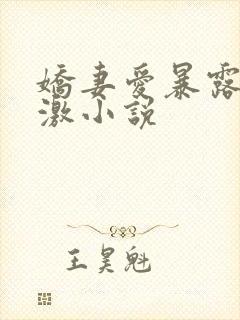 嬌妻愛暴露
激小說
王昊魁